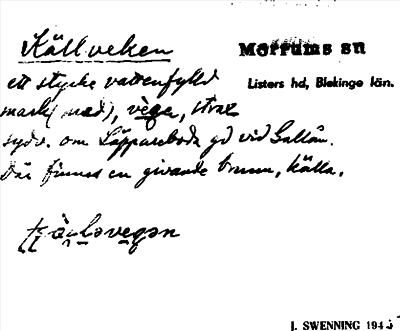 Källveken
Mörrums sn
Listers hd, Blekinge län.
ett stycke vattenfylld
mark (mad), vège, strax
sydv. om Läppareboda gd vid Gallån.
Där finnes en givande brunn, källa.
J. SWENNING 194